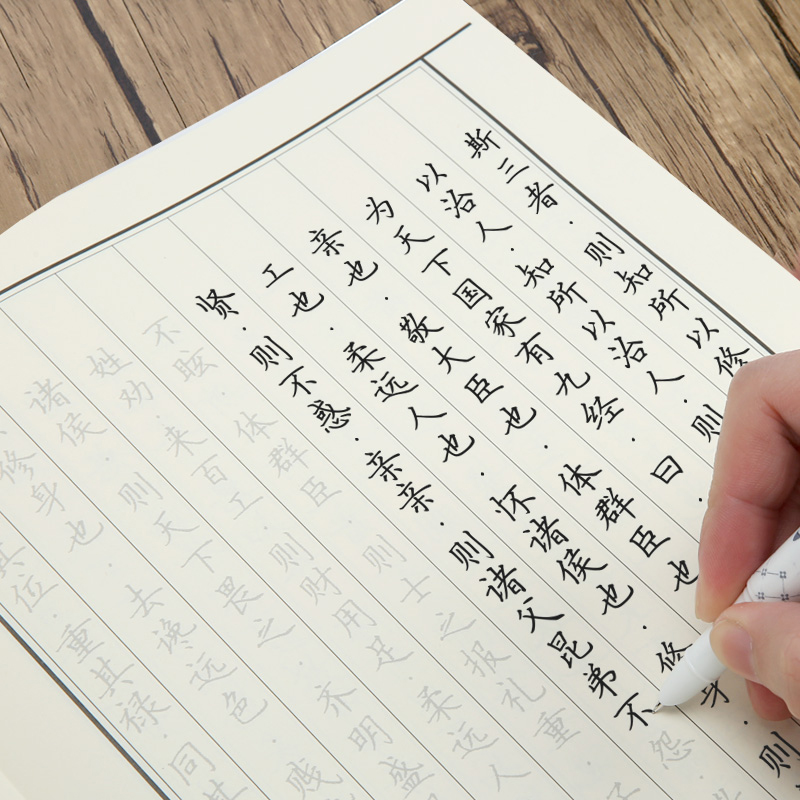 斯三者.则知所以修
以治人.知所以治人.则
为天下国家有九经.曰.修身则
亲也.敬大臣也.体群臣也
工也.柔远人也.怀诸侯也.修身则
贤.则不惑.亲亲.则诸父昆弟不怨
不眩.体群臣.则士之报礼重
姓劝.来百工.则财用足.柔远人
诸侯.则天下畏之.齐明盛
修身也.去谗远色.贱
其位.重其禄.同其